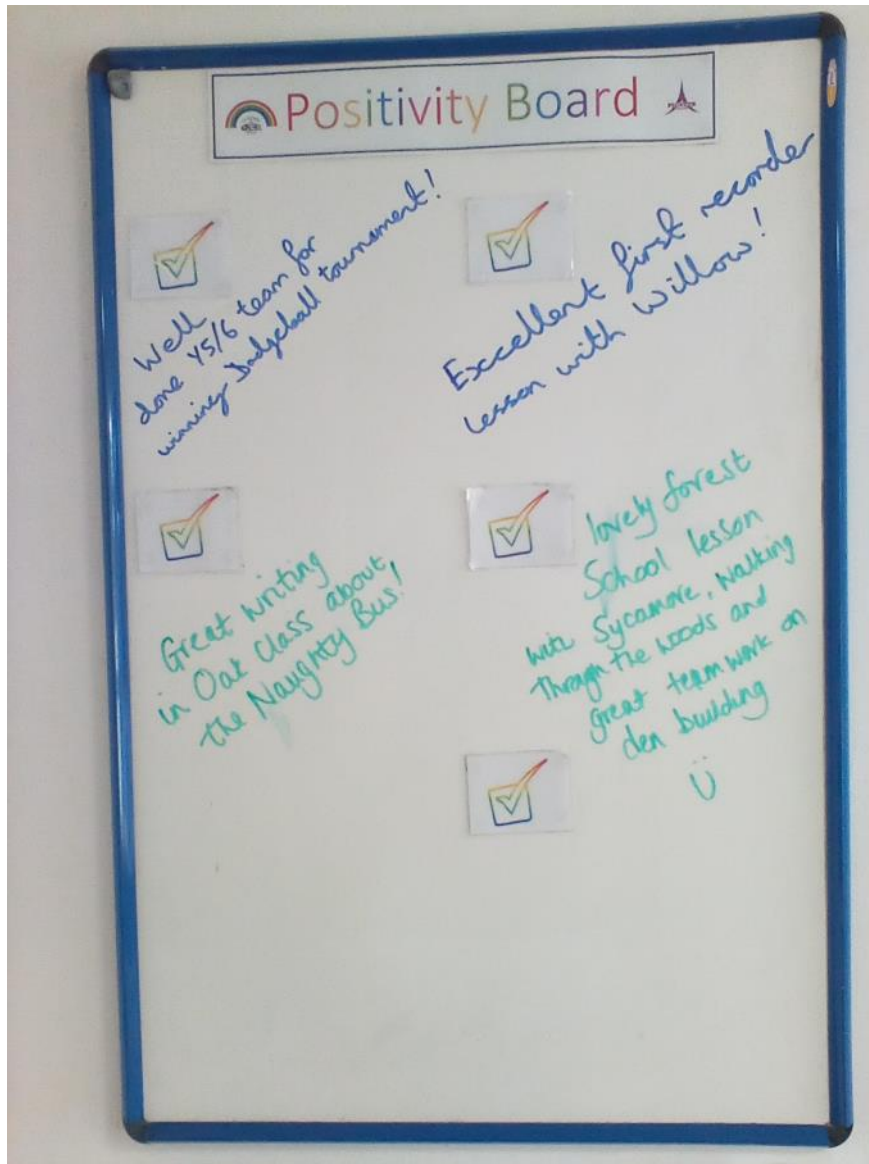 Positivity Board
Well
done Y5/6 team for
winning Dodgeball tournament!
Excellent first recorder
lesson with Willow!
Great writing
in Oak Class about
the Naughty Bus!
lovely forest
School lesson
with Sycamore, walking
through the woods and
great teamwork on
den building